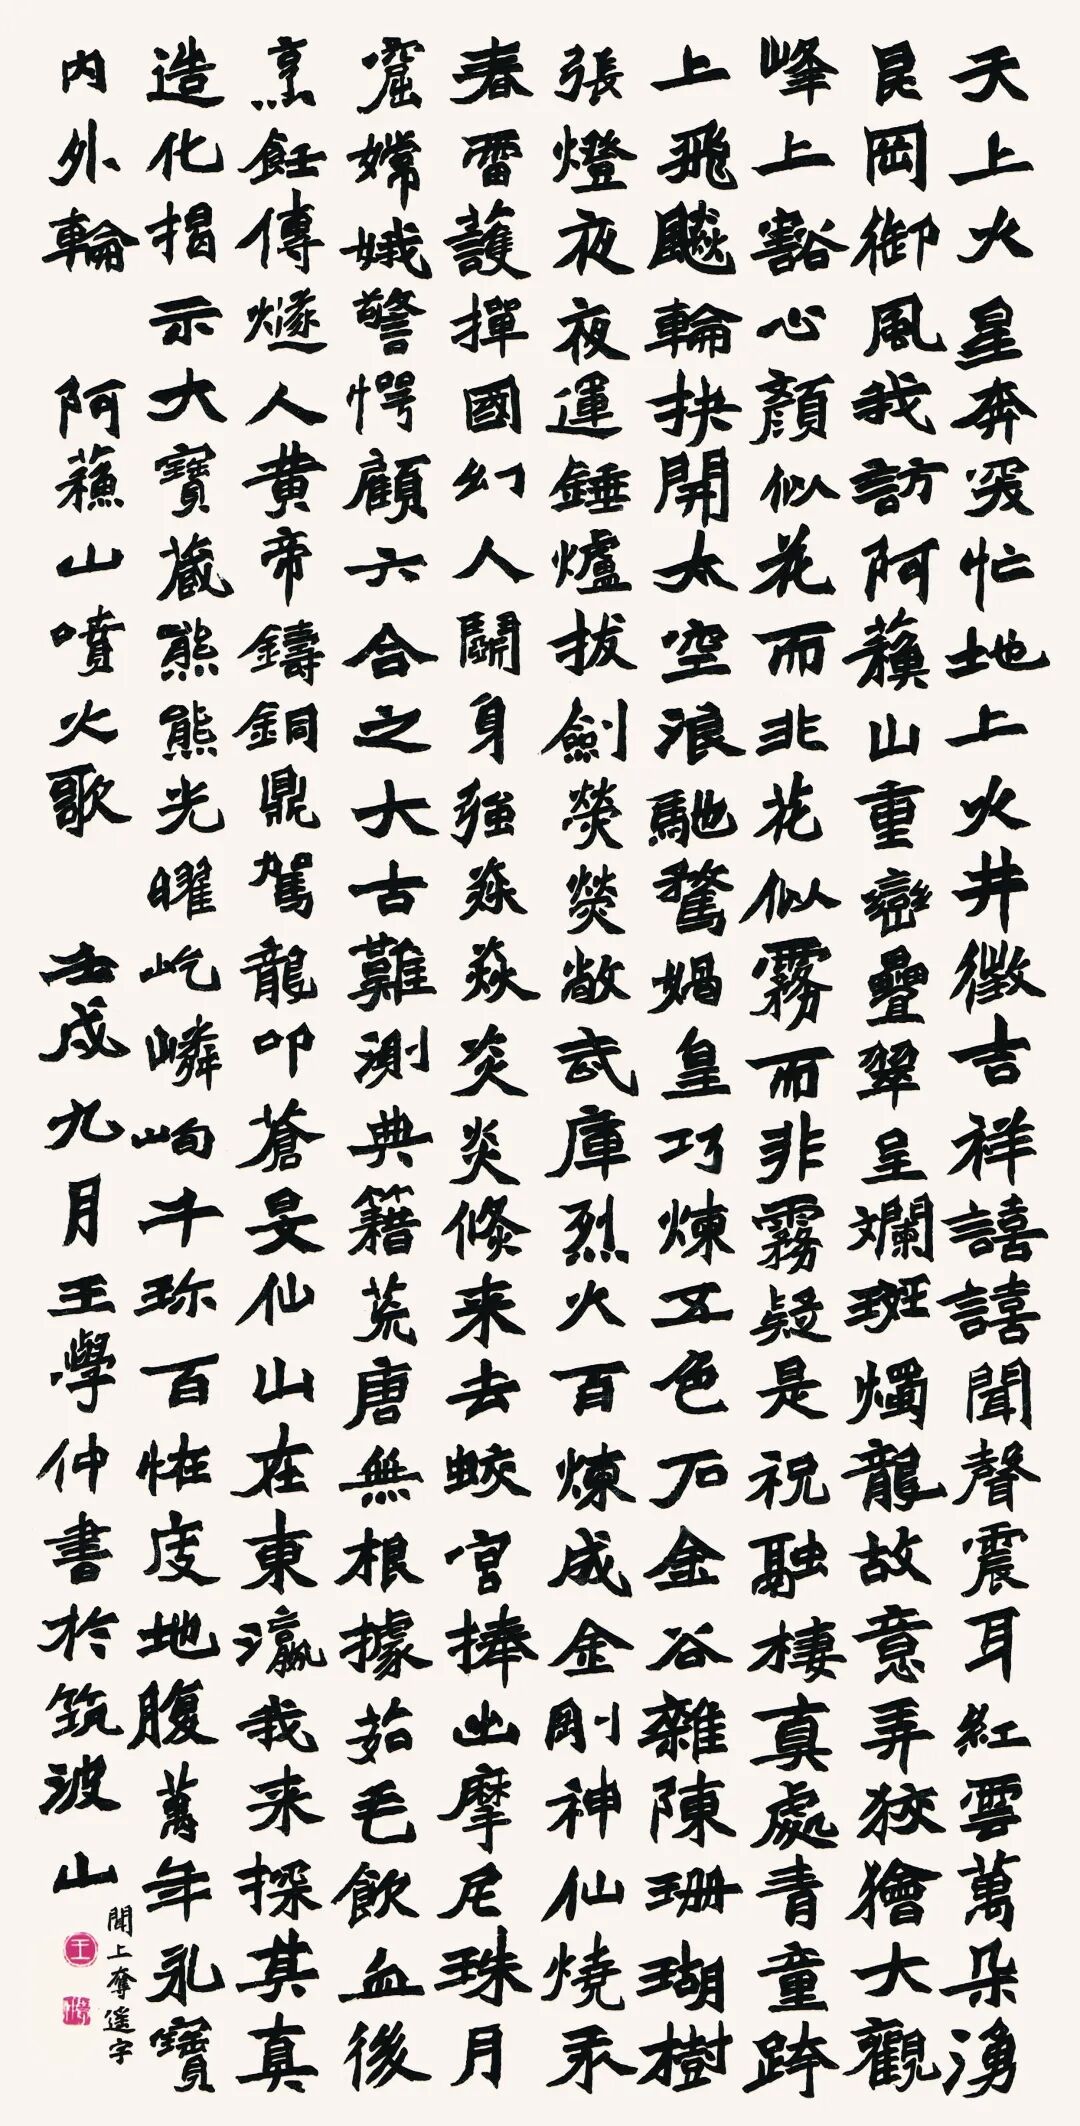 天上火星奔突忙地上火井徵吉祥譆譆聞聲震耳紅雲萬朵湧
昆岡御風我訪阿蘇山重巒疊翠呈斕斑燭龍故意弄狡獪大觀
峰上豁心顏似花而非花似霧而非霧疑是祝融棲真處青童跨
上飛飈輪抉開太空浪馳騖媧皇巧煉五色石金谷雜陳珊瑚樹
張燈夜夜運錘爐拔劍熒熒敞武庫烈火百煉成金剛神仙燒汞
春雷護撣國幻人鬭身強焱焱炎炎倏来去蛟宮捧出摩尼珠月
窟嫦娥警愕顧六合之大古難測典籍荒唐無根據茹毛飲血後
烹飪傳燧人黃帝鑄銅鼎駕龍叩蒼旻仙山在東瀛我来探其真
造化揭示大寶藏熊熊光曜屹嶙峋千珎百怪庋地腹萬年永寶
內外輪 阿蘇山噴火歌 壬戌九月王學仲書於筑波山
聞上奪遙字
王